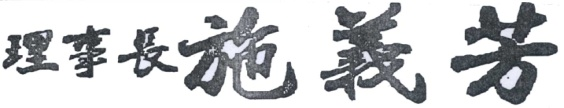 理事長施義芳